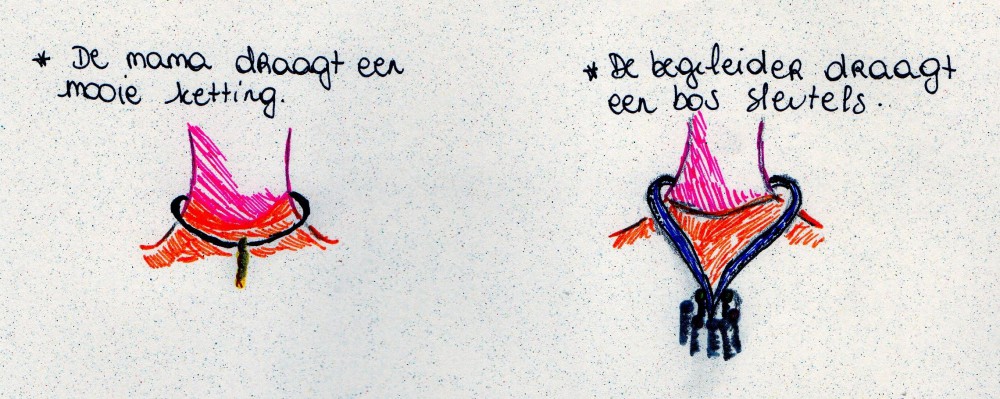 * De mama draagt een
mooie ketting.
* De begeleider draagt
een bos sleutels.